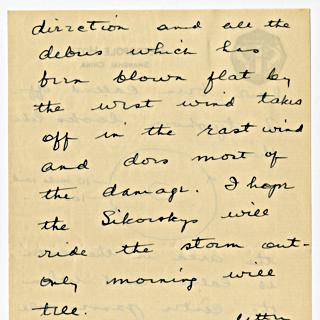 direction and all the
debris which has
been blown flat by
the west wind takes
off in the east wind
and does most of
the damage. I hope
the Sikorskys will
ride the storm out-
only morning will
tell.
letter